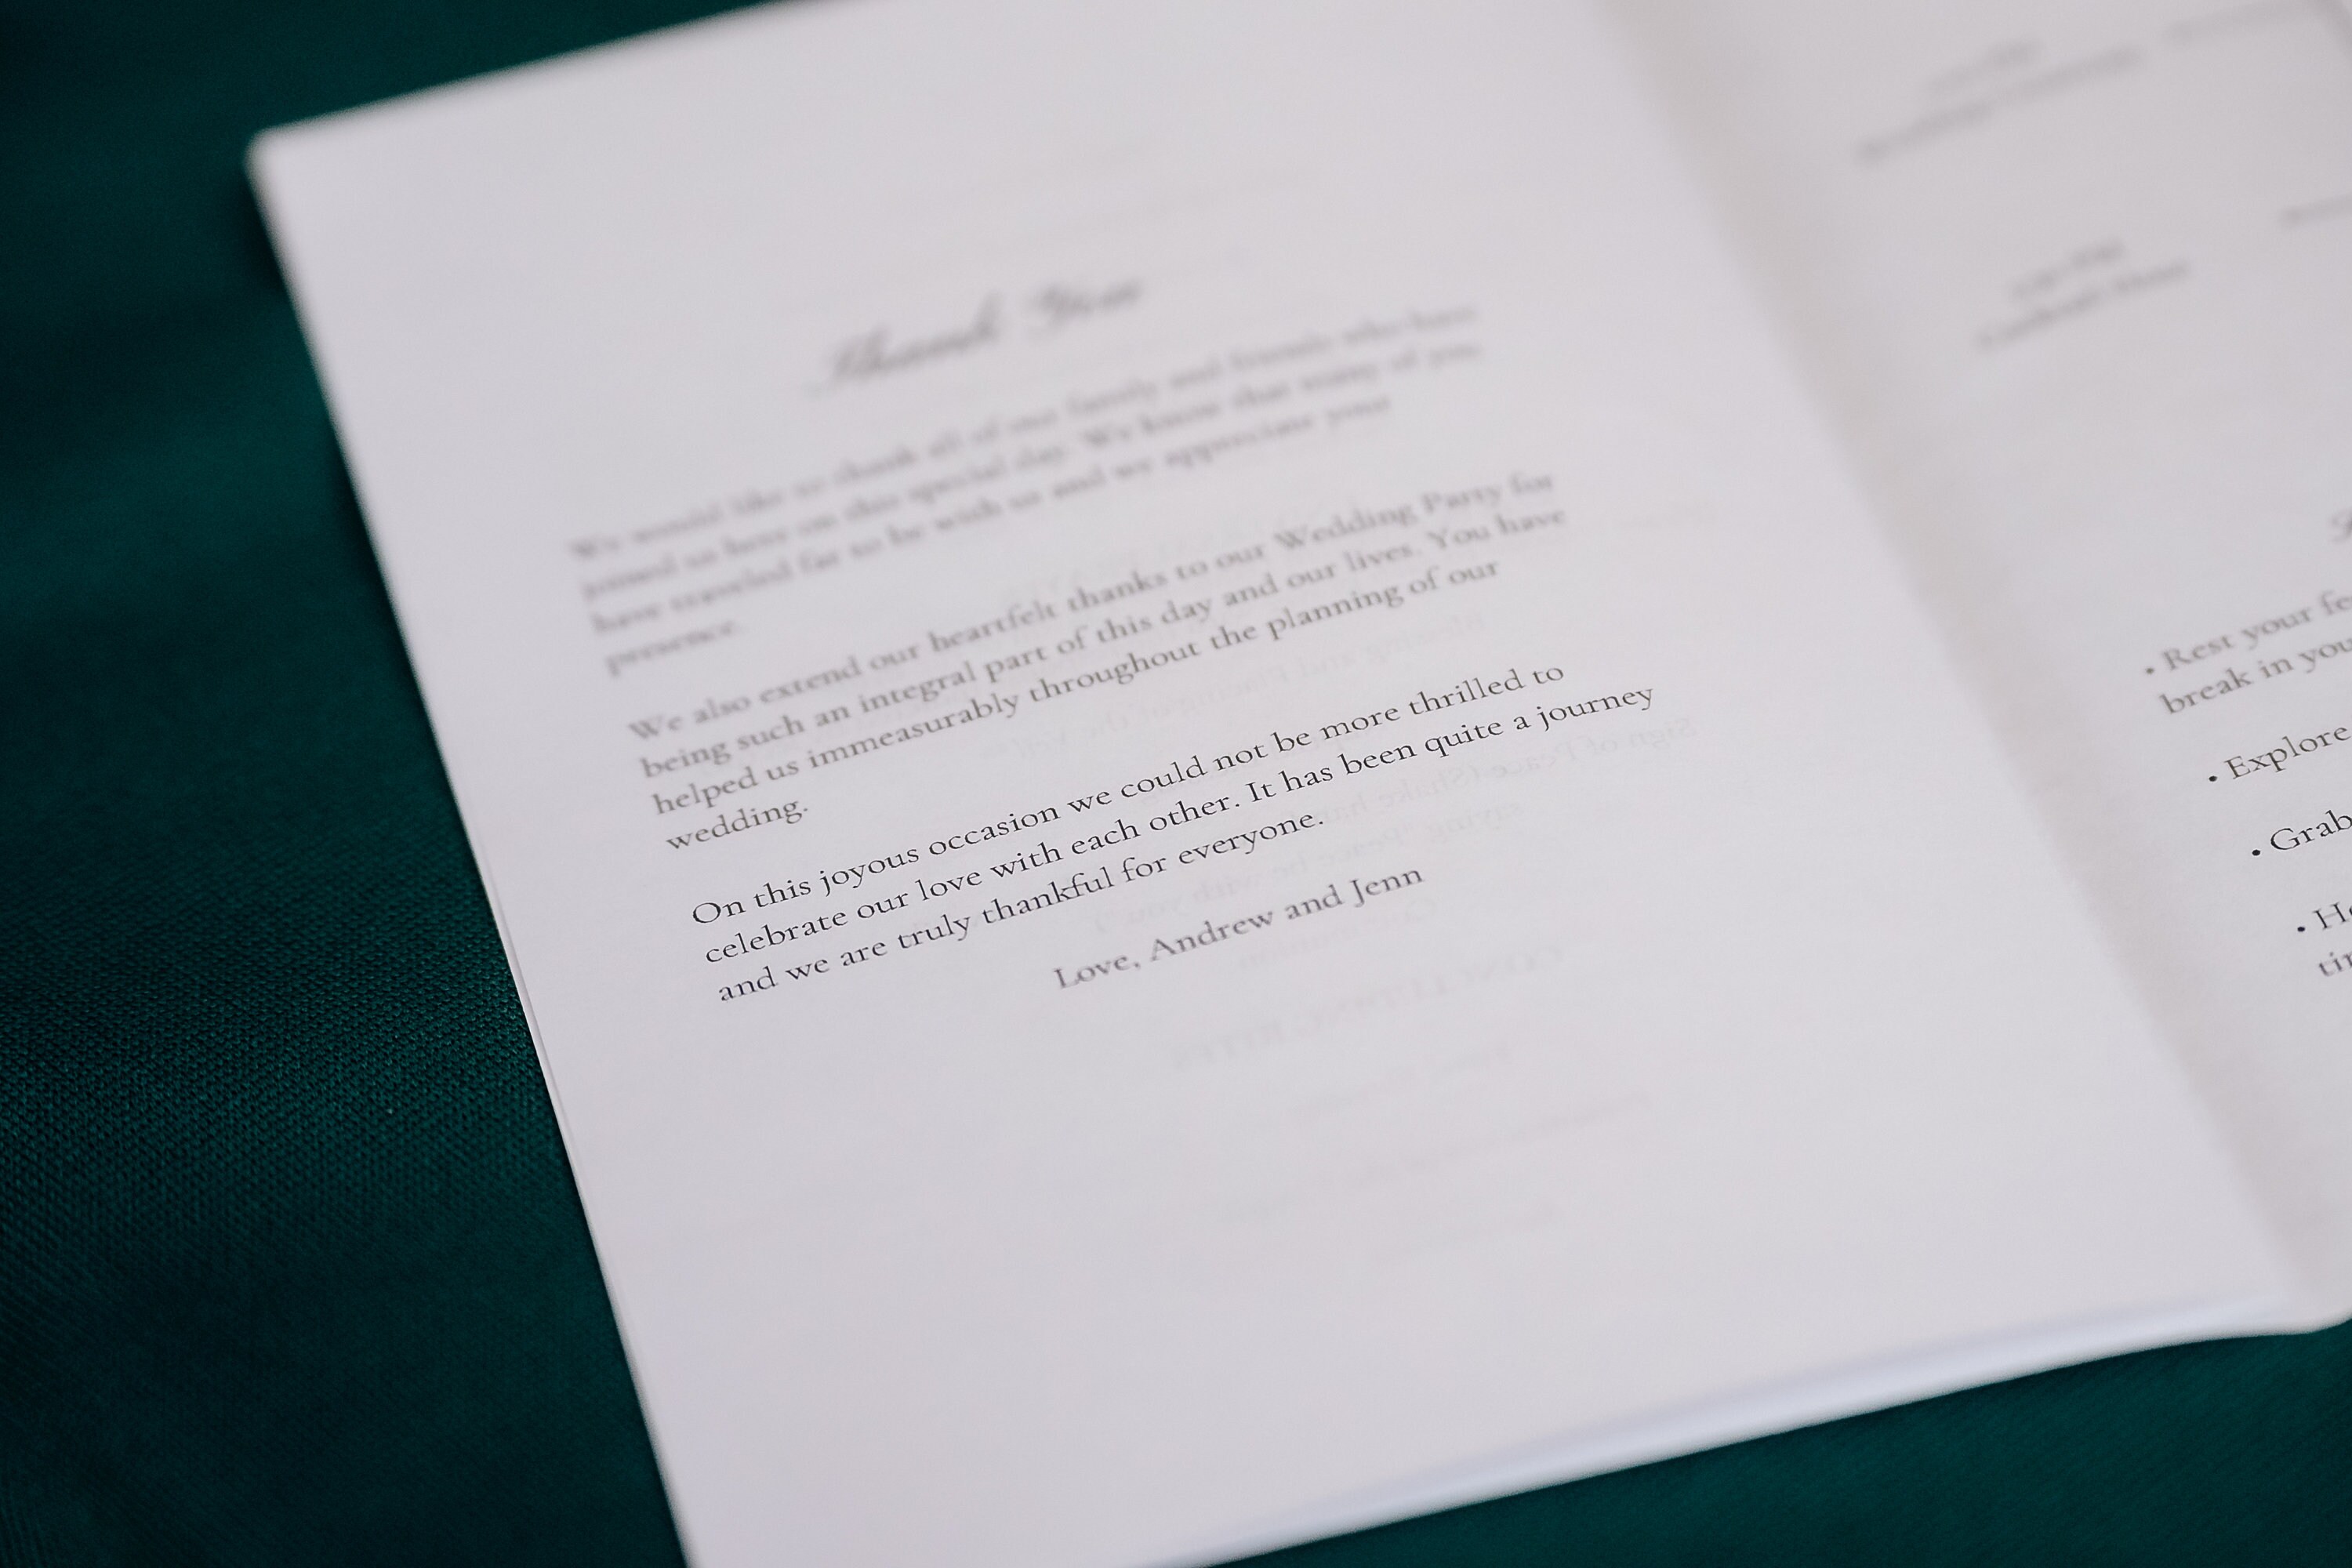 Thank You
We would like to thank all of our family and friends who have
joined us here on this special day. We know that many of you
have traveled far to be with us and we appreciate your
presence.
We also extend our heartfelt thanks to our Wedding Party for
being such an integral part of this day and our lives. You have
helped us immeasurably throughout the planning of our
wedding.
On this joyous occasion we could not be more thrilled to
celebrate our love with each other. It has been quite a journey
and we are truly thankful for everyone.
Love, Andrew and Jenn
• Rest your
break in
• Explore
• Grab